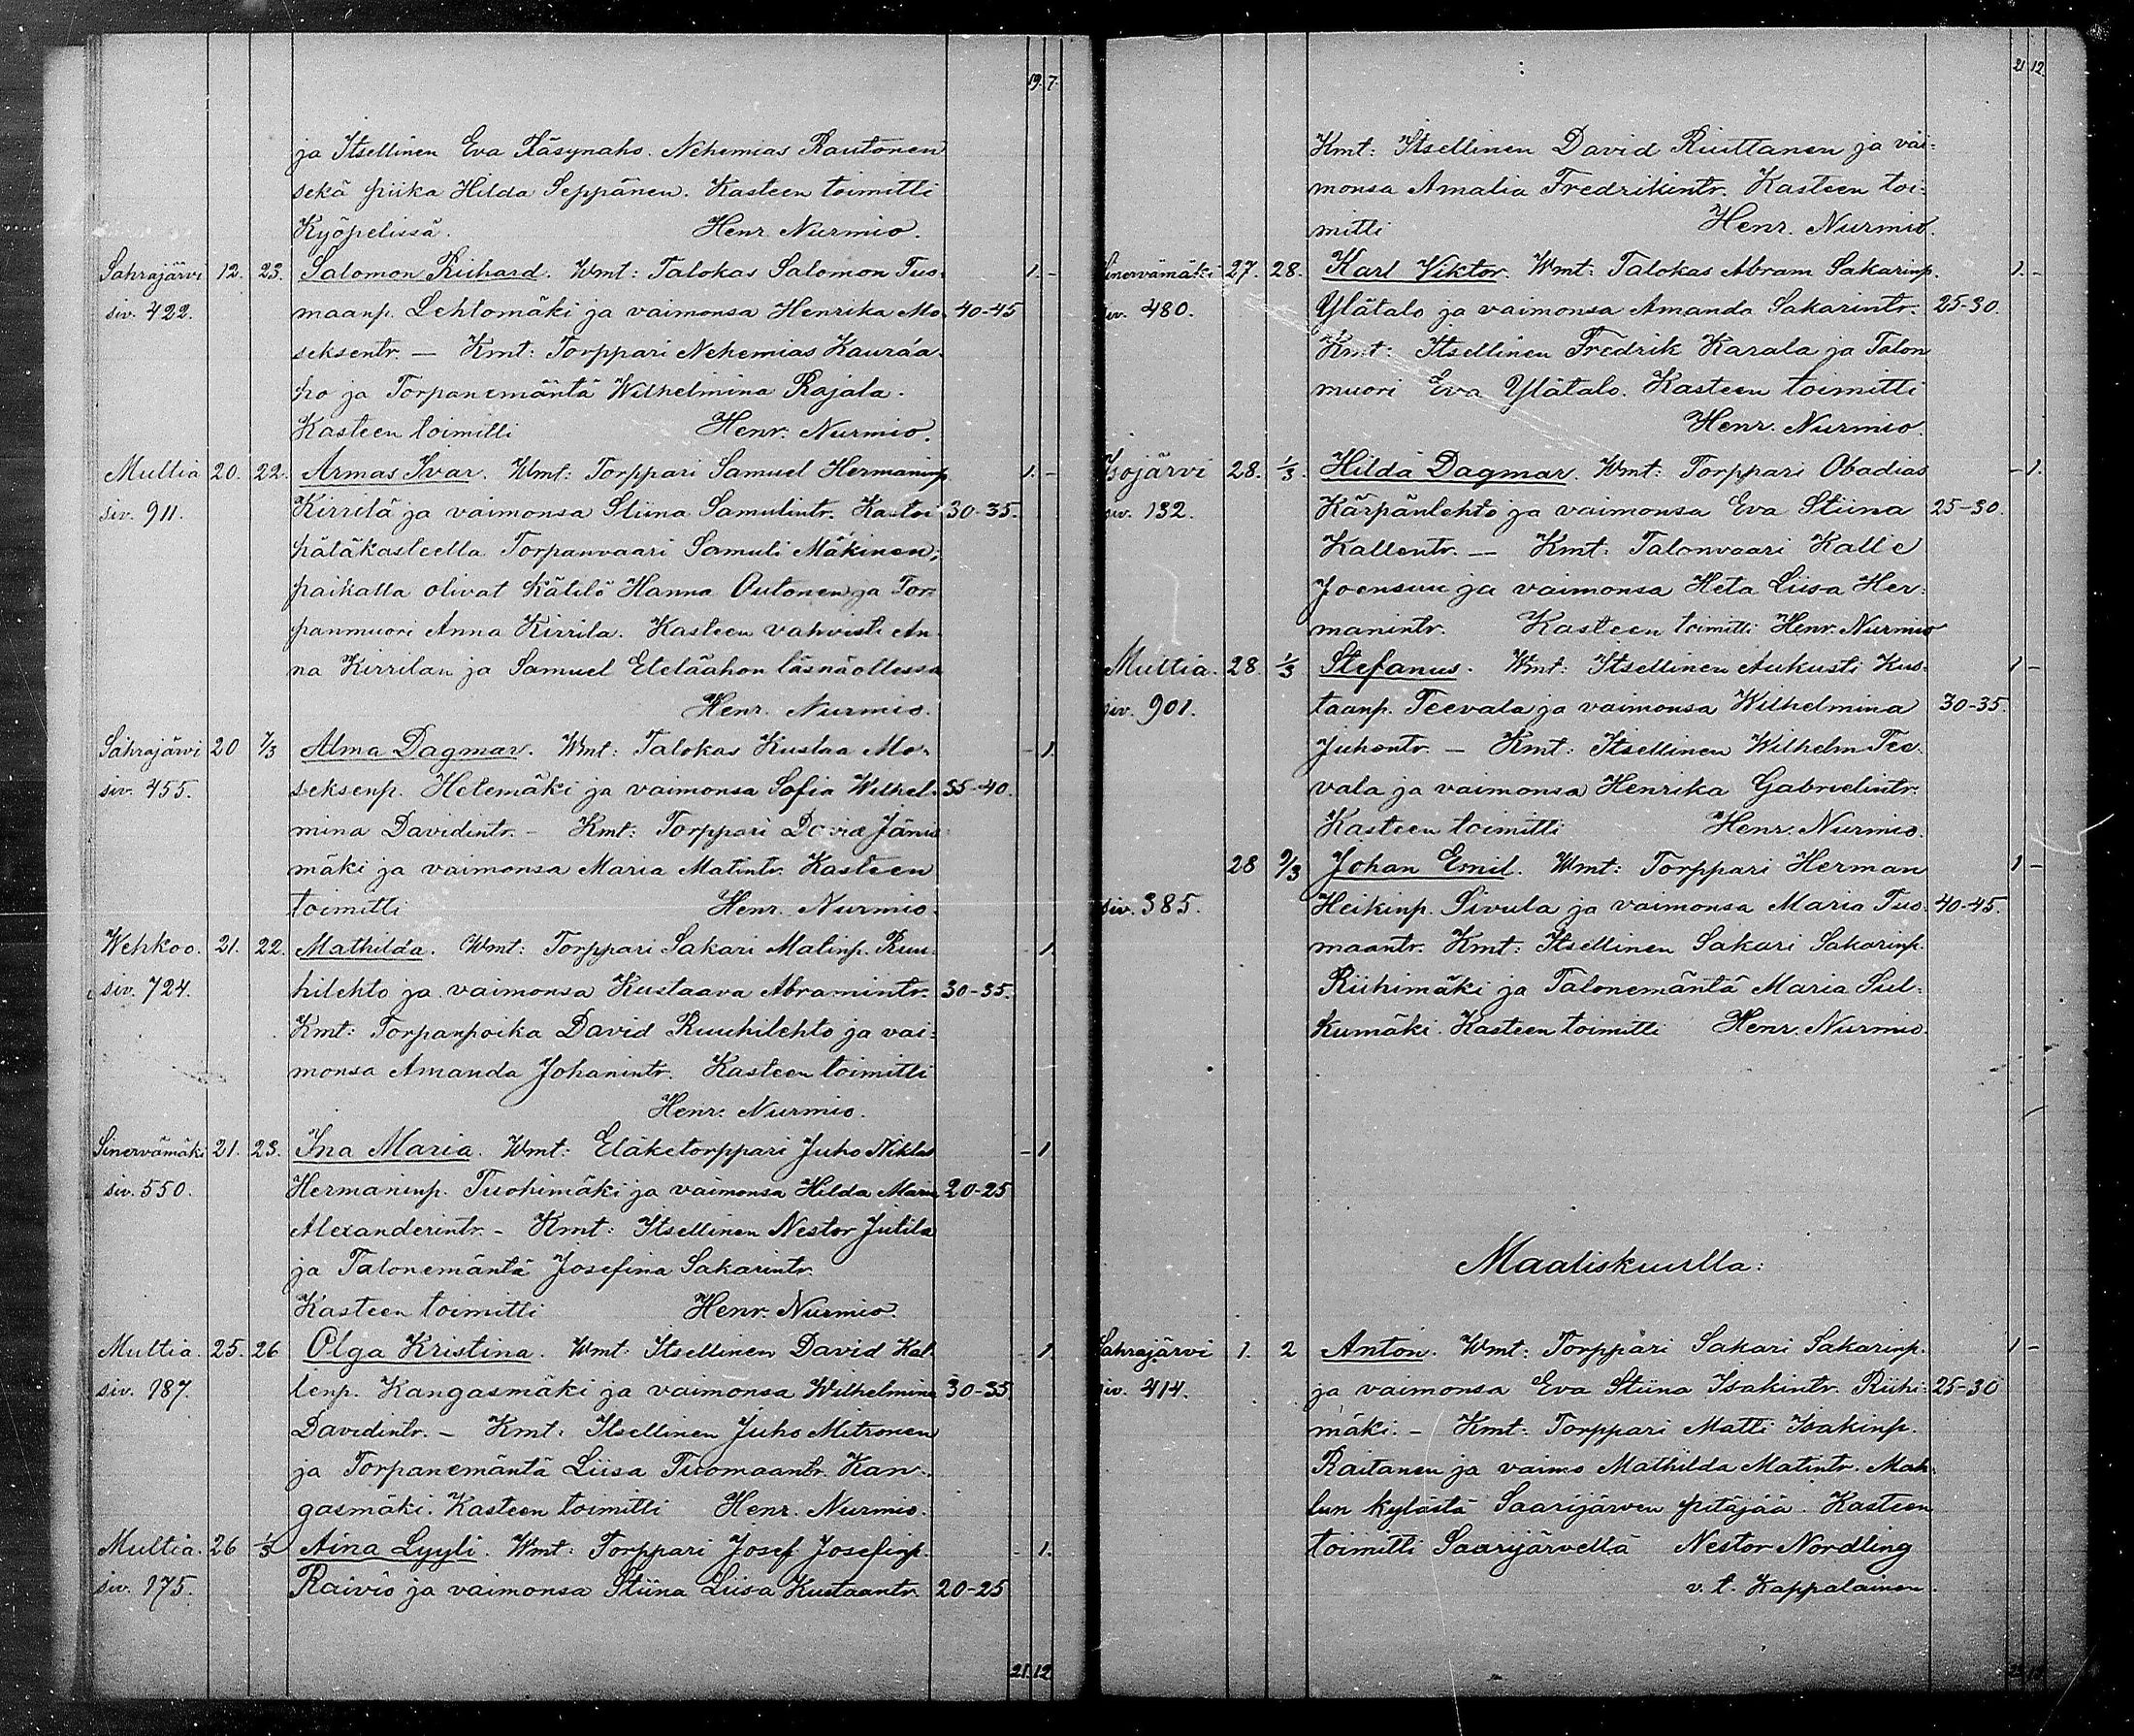 19. 7.
ja Itsellinen Eva Räsynaho. Nehemias Rautonen
sekä piika Hilda Seppänen. Kasteen toimitti
Kyöpelissä. Henr. Nurmio.
Sahrajärvi 12. 23. Salomon Richard. Wmt: Talokas Salomon Tuo- 1. -
siv. 422. maanp. Lehtomäki ja vaimonsa Henrika Mo- 40-45
seksentr. — Kmt: Torppari Nehemias Kauraa-
ho ja Torpanemäntä Wilhelmina Rajala.
Kasteen toimitti Henr. Nurmio.
Multia 20. 22. Armas Ivar. Wmt: Torppari Samuel Hermaninp. 1. -
siv. 911. Kirrilä ja vaimonsa Stiina Samulintr. Kastoi 30-35.
hätäkasteella Torpanvaari Samuli Mäkinen;
paikalla olivat kätilö Hanna Outonen ja Tor-
panmuori Anna Kirrila. Kasteen vahvisti An-
na Kirrilan ja Samuel Eteläahon läsnäollessa
Henr. Nurmio.
Sahrajärvi 20 7/3 Alma Dagmar. Wmt: Talokas Kustaa Mo- - 1.
siv. 455. seksenp. Helemäki ja vaimonsa Sofia Wilhel- 35-40.
mina Davidintr. - Kmt: Torppari David Jänis-
mäki ja vaimonsa Maria Matintr. Kasteen
toimitti Henr. Nurmio.
Wehkoo. 21. 22. Mathilda. Wmt: Torppari Sakari Matinp. Ruu- - 1.
siv. 724. hilehto ja vaimonsa Kustaava Abramintr. 30-35.
Kmt: Torpanpoika David Ruuhilehto ja vai-
monsa Amanda Johanintr. Kasteen toimitti
Henr. Nurmio.
Sinervämäki 21. 23. Ina Maria. Wmt: Eläketorppari Juho Niklas - 1
siv. 550. Hermaninp. Tuohimäki ja vaimonsa Hilda Maria 20-25
Alexanderintr. - Kmt: Itsellinen Nestor Jutila
ja Talonemäntä Josefina Sakarintr.
Kasteen toimitti Henr. Nurmio.
Multia. 25. 26 Olga Kristina. Wmt. Itsellinen David Kal- - 1.
siv. 187. lenp. Kangasmäki ja vaimonsa Wilhelmina 30-35
Davidintr. - Kmt: Itsellinen Juho Mitronen
ja Torpanemäntä Liisa Tuomaantr. Kan-
gasmäki. Kasteen toimitti Henr. Nurmio.
Multia. 26 1/3 Aina Lyyli. Wmt: Torppari Josef Josefinp. - 1.
siv. 175. Raivio ja vaimonsa Stiina Liisa Kustaantr. 20-25
21. 12
21 12.
Kmt: Itsellinen David Riuttanen ja vai-
monsa Amalia Fredrikintr. Kasteen toi-
mitti Henr. Nurmio.
Sinervämäki 27. 28. Karl Viktor. Wmt: Talokas Abram Sakarinp. 1. -
siv. 480. Ylätalo ja vaimonsa Amanda Sakarintr. 25-30.
Kmt: Itsellinen Fredrik Karala ja Talon
muori Eva Ylätalo. Kasteen toimitti
Henr. Nurmio.
Isojärvi 28. 1/3. Hilda Dagmar. Wmt: Torppari Obadias - 1.
siv. 132. Kärpänlehto ja vaimonsa Eva Stiina 25-30.
Kallentr. — Kmt: Talonvaari Kalle
Joensuu ja vaimonsa Heta Liisa Her-
manintr. Kasteen toimitti Henr. Nurmio
Multia. 28 1/3 Stefanus. Wmt: Itsellinen Aukusti Kus- 1 -
siv. 901. taanp. Teevala ja vaimonsa Wilhelmina 30-35.
Juhontr. - Kmt: Itsellinen Wilhelm Tee-
vala ja vaimonsa Henrika Gabrielintr.
Kasteen toimitti Henr. Nurmio.
28 9/3 Johan Emil. Wmt: Torppari Herman 1 -
siv. 385. Heikinp. Sivula ja vaimonsa Maria Tuo- 40-45.
maantr. Kmt: Itsellinen Sakari Sakarinp.
Riihimäki ja Talonemäntä Maria Sul-
kumäki. Kasteen toimitti Henr. Nurmio.
Maaliskuulla:
Sahrajärvi 1. 2 Anton. Wmt: Torppari Sakari Sakarinp. 1 -
siv. 414. ja vaimonsa Eva Stiina Isakintr. Riihi- 25-30
mäki. - Kmt: Torppari Matti Isakinp.
Raitanen ja vaimo Mathilda Matintr. Mah-
lun kylästä Saarijärven pitäjää. Kasteen
toimitti Saarijärvellä Nestor Nordling
v. t. Kappalainen.